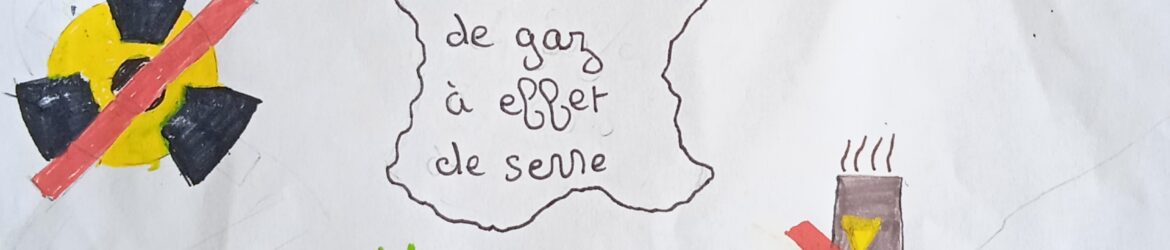 de gaz
à effet
de serre